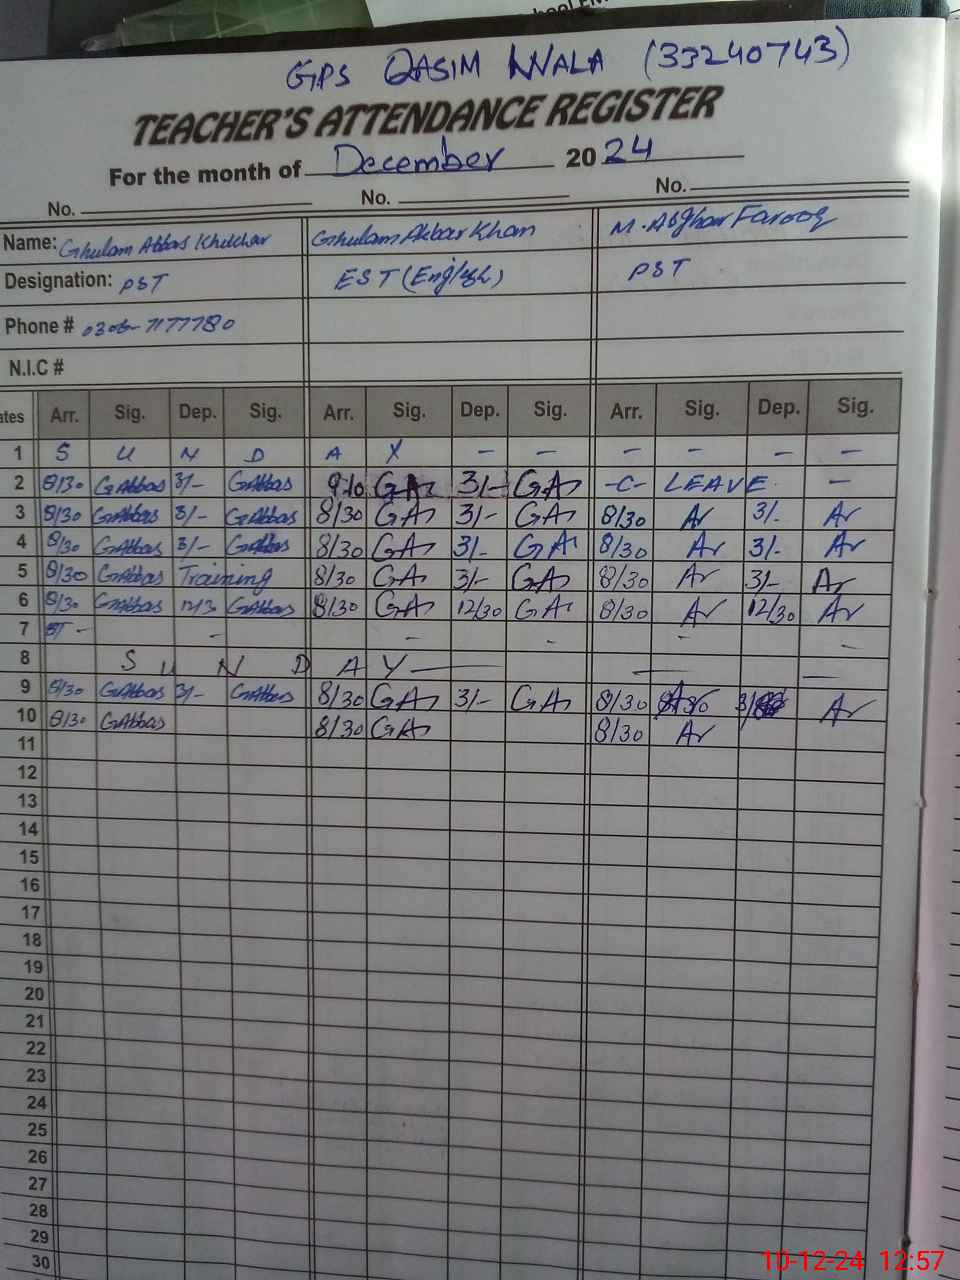 GPS QASIM WALA (33240743)
TEACHER'S ATTENDANCE REGISTER
For the month of December 2024
No. No. No.
Name: Ghulam Abbas Khichar Ghulam Akbar Khan M. Asghar Farooq
Designation: PST EST (English) PST
Phone # 0306-7177780
N.I.C #
ates Arr. Sig. Dep. Sig. Arr. Sig. Dep. Sig. Arr. Sig. Dep. Sig.
1 S U N D A Y - - - - - -
2 8/30 GAbbas 3/- GAbbas 9:10 GA 3/- GA -C- LEAVE -
3 8/30 GAbbas 3/- GAbbas 8/30 GA 3/- GA 8/30 Ar 3/- Ar
4 8/30 GAbbas 3/- GAbbas 8/30 GA 3/- GA 8/30 Ar 3/- Ar
5 8/30 GAbbas Training 8/30 GA 3/- GA 8/30 Ar 3/- Ar
6 8/30 GAbbas GAbbas 8/30 GA 12/30 GA 8/30 Ar 12/30 Ar
7 - - - - - -
8 S U N D A Y - - -
9 8/30 GAbbas 3/- GAbbas 8/30 GA 3/- GA 8/30 Ar
10 8/30 GAbbas 8/30 GA 8/30 Ar
11
12
13
14
15
16
17
18
19
20
21
22
23
24
25
26
27
28
29
30
10-12-24 12:57